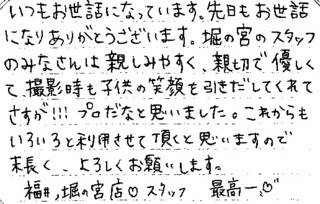 いつもお世話になっています。先日もお世話
になりありがとうございます。堀の宮のスタッフ
のみなさんは親しみやすく、親切で優しく
て、撮影時も子供の笑顔を引きだしてくれて
さすが!!! プロだなと思いました。これからも
いろいろと利用させて頂くと思いますので
末長く、よろしくお願いします。
福井、堀の宮店♡スタッフ 最高ー♡